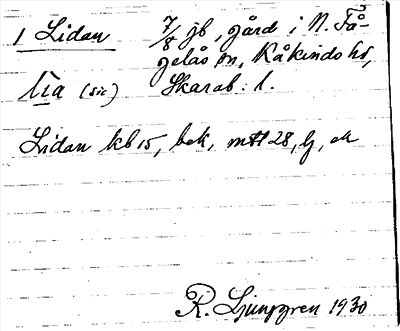 1 Lidan 7/8 jb, gård i N. Få-
gelås sn, Kåkinds hd,
lia (sic) Skarab. l.
Lidan kb 15, bek, mtl 28, lj, ek
R. Ljunggren 1930